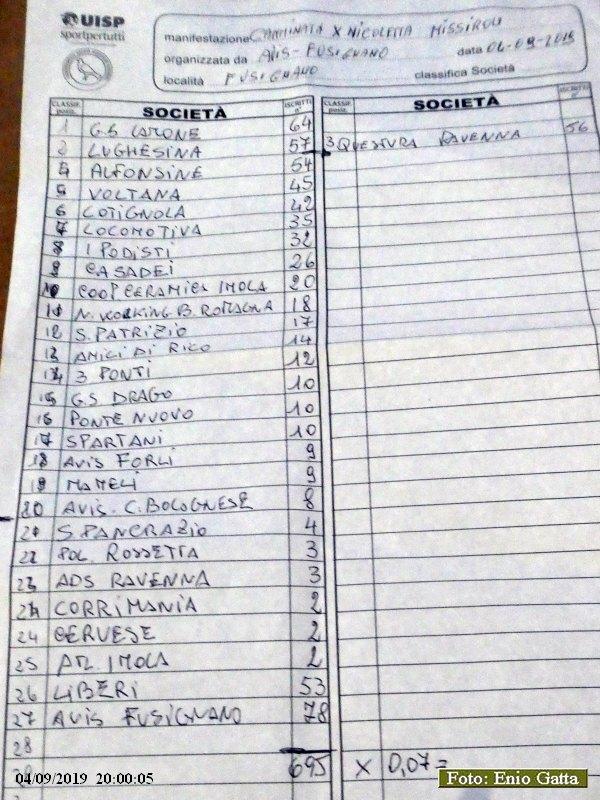 UISP
sportpertutti
manifestazione CAMMINATA X NICOLETTA MISSIROLI
organizzata da AVIS - FUSIGNANO data 04-09-2019
località FUSIGNANO classifica Società
CLASSIF. SOCIETÀ ISCRITTI CLASSIF. SOCIETÀ ISCRITTI
1 G.S. LAMONE 64
2 LUGHESINA 57 3 QUESTURA RAVENNA 56
4 ALFONSINE 54
5 VOLTANA 45
6 COTIGNOLA 42
7 LOCOMOTIVA 35
8 I PODISTI 32
9 CASADEI 26
10 COOP CERAMICA IMOLA 20
11 N. WORKING B. ROMAGNA 18
12 S. PATRIZIO 17
13 AMICI DI RICO 14
14 3 PONTI 12
15 G.S DRAGO 10
16 PONTE NUOVO 10
17 SPARTANI 10
18 AVIS FORLI 9
19 MAMELI 9
20 AVIS. C. BOLOGNESE 8
21 S. PANCRAZIO 4
22 POL. ROSSETTA 3
23 ADS RAVENNA 3
24 CORRIMANIA 2
24 CERVESE 2
25 ATL IMOLA 2
26 LIBERI 53
27 AVIS FUSIGNANO 78
28
695 X 0,07 =
04/09/2019 20:00:05
Foto: Enio Gatta